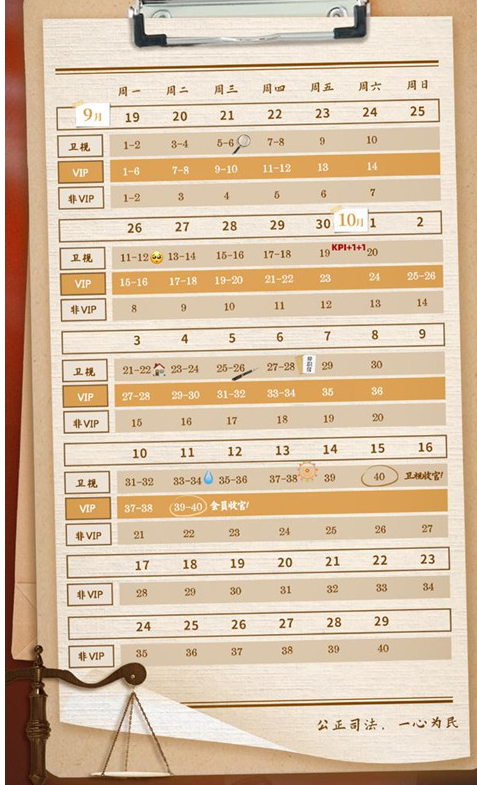 周一 周二 周三 周四 周五 周六 周日
9月 19 20 21 22 23 24 25
卫视 1-2 3-4 5-6 7-8 9 10
VIP 1-6 7-8 9-10 11-12 13 14
非VIP 1-2 3 4 5 6 7
26 27 28 29 30 10月 1 2
卫视 11-12 13-14 15-16 17-18 19 KPI+1+1 20
VIP 15-16 17-18 19-20 21-22 23 24 25-26
非VIP 8 9 10 11 12 13 14
3 4 5 6 7 8 9
卫视 21-22 23-24 25-26 27-28 29 30
VIP 27-28 29-30 31-32 33-34 35 36
非VIP 15 16 17 18 19 20
10 11 12 13 14 15 16
卫视 31-32 33-34 35-36 37-38 39 40 卫视收官!
VIP 37-38 39-40 会员收官!
非VIP 21 22 23 24 25 26 27
17 18 19 20 21 22 23
非VIP 28 29 30 31 32 33 34
24 25 26 27 28 29
非VIP 35 36 37 38 39 40
公正司法，一心为民